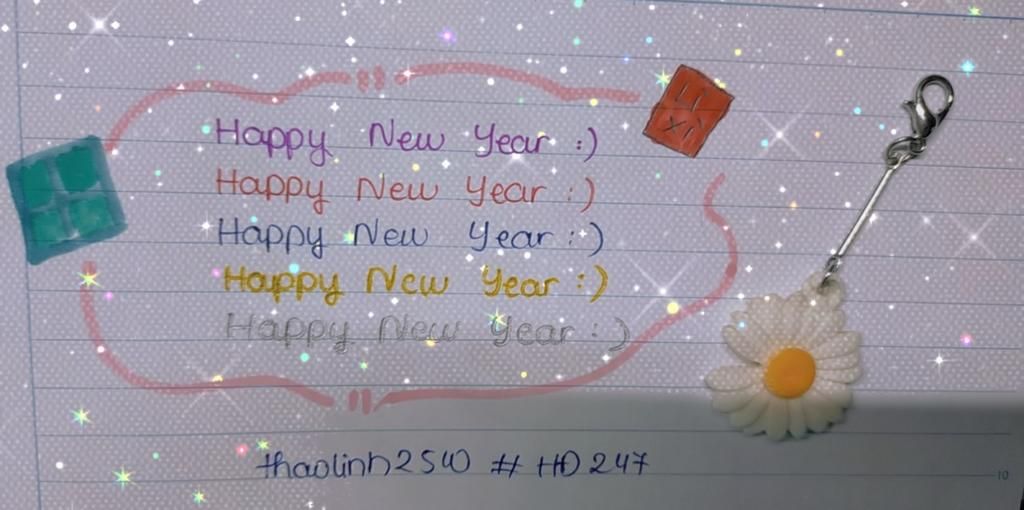 Happy New Year :)
Happy New Year :)
Happy New Year :)
Happy New Year :)
Happy New Year :)
thaolinh2510 # HD247
10